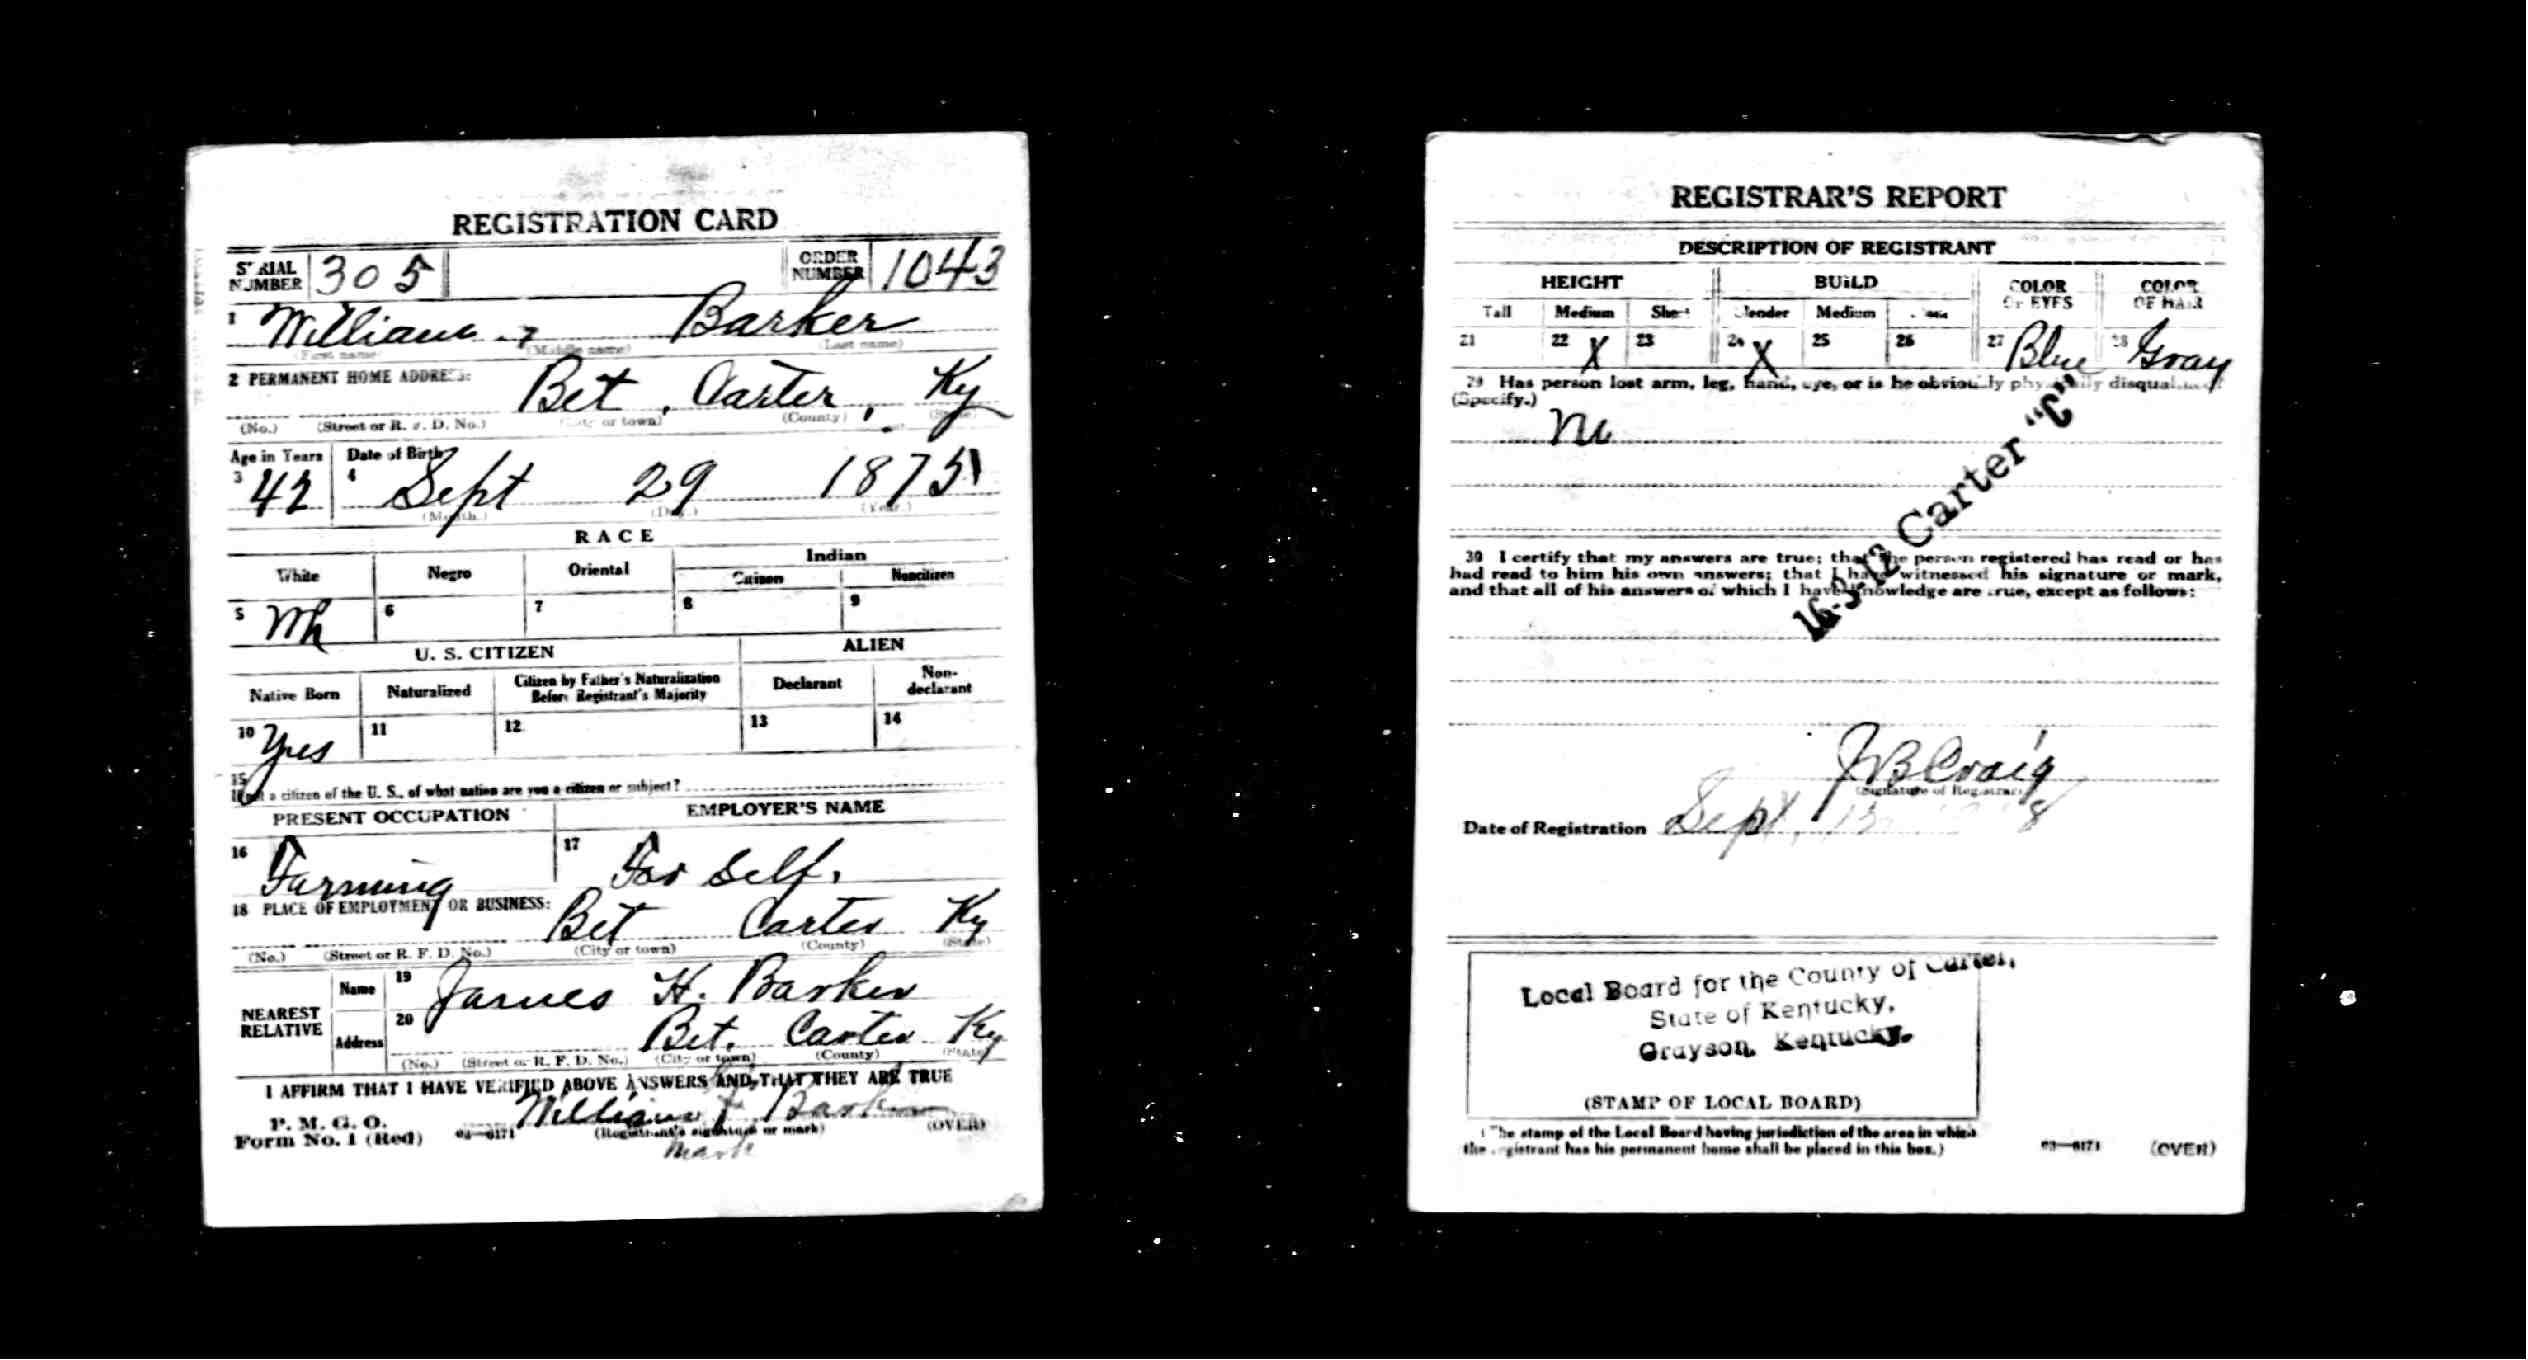 REGISTRATION CARD
SERIAL NUMBER 305 ORDER NUMBER 1043
1 William Barker
(First name) (Middle name) (Last name)
2 PERMANENT HOME ADDRESS: Bet, Carter, Ky
(No.) (Street or R. F. D. No.) (City or town) (County) (State)
Age in Years Date of Birth
3 42 4 Sept 29 1875
(Month.) (Day.) (Year.)
RACE
White Negro Oriental Indian
Citizen Noncitizen
5 Wh 6 7 8 9
U. S. CITIZEN ALIEN
Native Born Naturalized Citizen by Father's Naturalization Before Registrant's Majority Declarant Non-declarant
10 Yes 11 12 13 14
15
If not a citizen of the U. S., of what nation are you a citizen or subject?
PRESENT OCCUPATION EMPLOYER'S NAME
16 Farming 17 For Self.
18 PLACE OF EMPLOYMENT OR BUSINESS: Bet Carter Ky
(No.) (Street or R. F. D. No.) (City or town) (County) (State)
NEAREST RELATIVE Name 19 James H. Barker
Address 20 Bet. Carter Ky
(No.) (Street or R. F. D. No.) (City or town) (County) (State)
I AFFIRM THAT I HAVE VERIFIED ABOVE ANSWERS AND THAT THEY ARE TRUE
P. M. G. O.
Form No. 1 (Red) 03—6171 William Barker
(Registrant's signature or mark) (OVER)
Mark
REGISTRAR'S REPORT
DESCRIPTION OF REGISTRANT
HEIGHT BUILD COLOR OF EYES COLOR OF HAIR
Tall Medium Short Slender Medium
21 22 X 23 24 X 25 26 27 Blue 28 Gray
29 Has person lost arm, leg, hand, eye, or is he obviously physically disqualified?
(Specify.)
No
16-3-12 Carter "C"
30 I certify that my answers are true; that the person registered has read or has
had read to him his own answers; that I have witnessed his signature or mark,
and that all of his answers of which I have knowledge are true, except as follows:
J B Craig
(Signature of Registrar)
Date of Registration Sept. 8
Local Board for the County of Carter,
State of Kentucky,
Grayson, Kentucky.
(STAMP OF LOCAL BOARD)
(The stamp of the Local Board having jurisdiction of the area in which
the registrant has his permanent home shall be placed in this box.) 03—6171 (OVER)